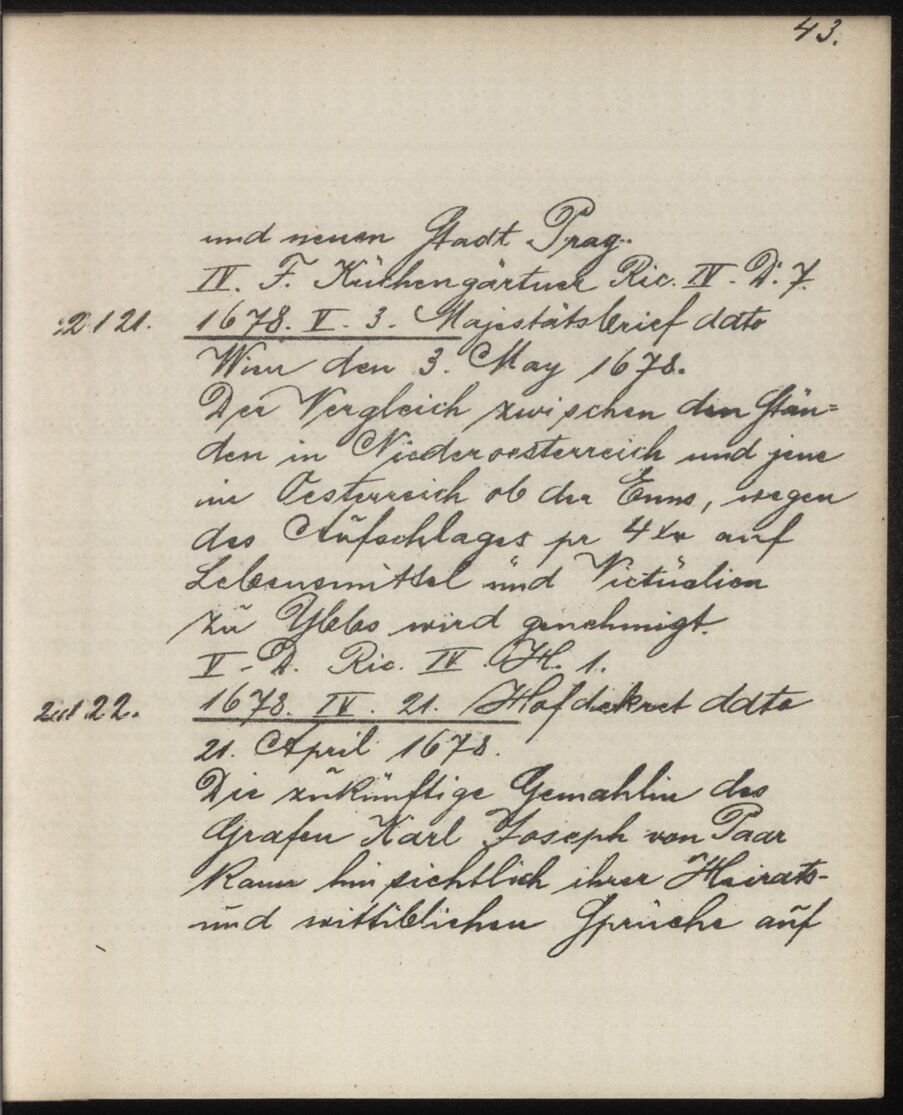 43.
und neuen Stadt Prag.
IV. F. Küchengärtner Ric. IV. D. 7.
2121. 1678. V. 3. Majestätsbrief ddto
Wien den 3. May 1678.
Der Vergleich zwischen den Stän=
den in Niederoesterreich und jene
im Oesterreich ob der Enns, wegen
des Aufschlages pr 4 xr auf
Lebensmittel und Victualien
zu Ybbs wird genehmigt.
V. D. Ric. IV. H. 1.
22. 1678. IV. 21. Hofdekret ddto
21. April 1678.
Die zukünftige Gemahlin des
Grafen Karl Joseph von Paar
kann hinsichtlich ihrer Heirats-
und wittiblichen Sprüche auf